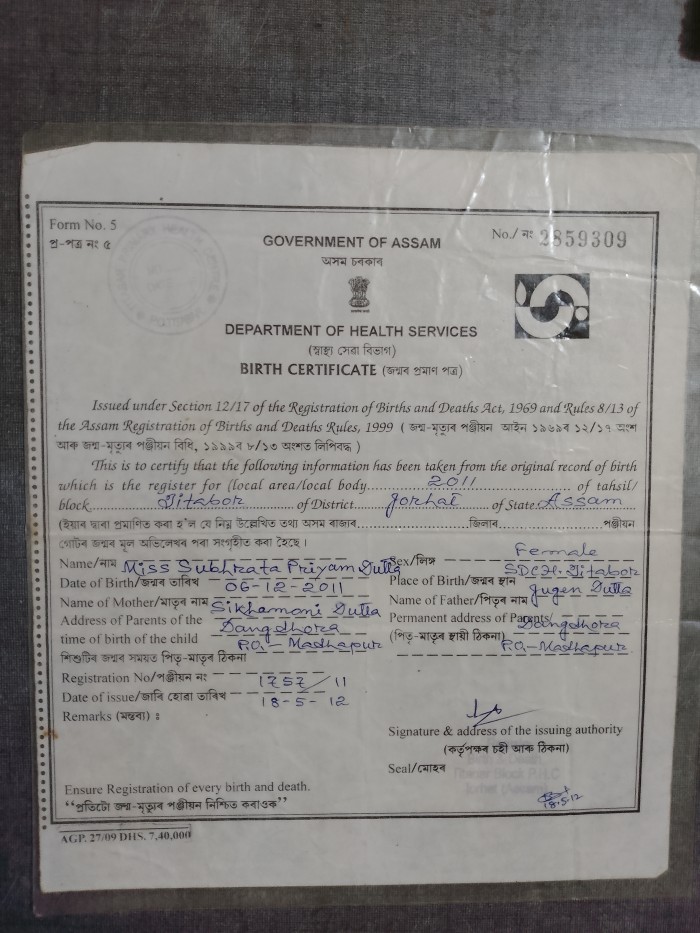 Form No. 5
প্ৰ-পত্ৰ নং ৫
No./ নং 2859309
GOVERNMENT OF ASSAM
অসম চৰকাৰ
DEPARTMENT OF HEALTH SERVICES
(স্বাস্থ্য সেৱা বিভাগ)
BIRTH CERTIFICATE (জন্মৰ প্ৰমাণ পত্ৰ)
Issued under Section 12/17 of the Registration of Births and Deaths Act, 1969 and Rules 8/13 of
the Assam Registration of Births and Deaths Rules, 1999 ( জন্ম-মৃত্যুৰ পঞ্জীয়ন আইন ১৯৬৯ৰ ১২/১৭ অংশ
আৰু জন্ম-মৃত্যুৰ পঞ্জীয়ন বিধি, ১৯৯৯ৰ ৮/১৩ অংশত লিপিবদ্ধ )
This is to certify that the following information has been taken from the original record of birth
which is the register for (local area/local body 2011 of tahsil/
block Titabor of District Jorhat of State Assam
(ইয়াৰ দ্বাৰা প্ৰমাণিত কৰা হ'ল যে নিম্ন উল্লেখিত তথ্য অসম ৰাজ্যৰ জিলাৰ পঞ্জীয়ন
গোটৰ জন্মৰ মূল অভিলেখৰ পৰা সংগৃহীত কৰা হৈছে ৷
Name/নাম Miss Subhrata Priyam Dutta Sex/লিঙ্গ Female
Date of Birth/জন্মৰ তাৰিখ 06-12-2011 Place of Birth/জন্মৰ স্থান SDCH. Titabor
Name of Mother/মাতৃৰ নাম Sikhamoni Dutta Name of Father/পিতৃৰ নাম Jugen Dutta
Address of Parents of the Dangdhora Permanent address of Parents Dangdhora
time of birth of the child P.O.- Madhapur (পিতৃ-মাতৃৰ স্থায়ী ঠিকনা) P.O.- Madhapur
শিশুটিৰ জন্মৰ সময়ত পিতৃ-মাতৃৰ ঠিকনা
Registration No/পঞ্জীয়ন নং 1757/11
Date of issue/জাৰি হোৱা তাৰিখ 18-5-12
Remarks (মন্তব্য) :
Signature & address of the issuing authority
(কৰ্তৃপক্ষৰ চহী আৰু ঠিকনা)
Seal/মোহৰ
18.5.12
Ensure Registration of every birth and death.
“প্ৰতিটো জন্ম-মৃত্যুৰ পঞ্জীয়ন নিশ্চিত কৰাওক”
AGP. 27/09 DHS. 7,40,000